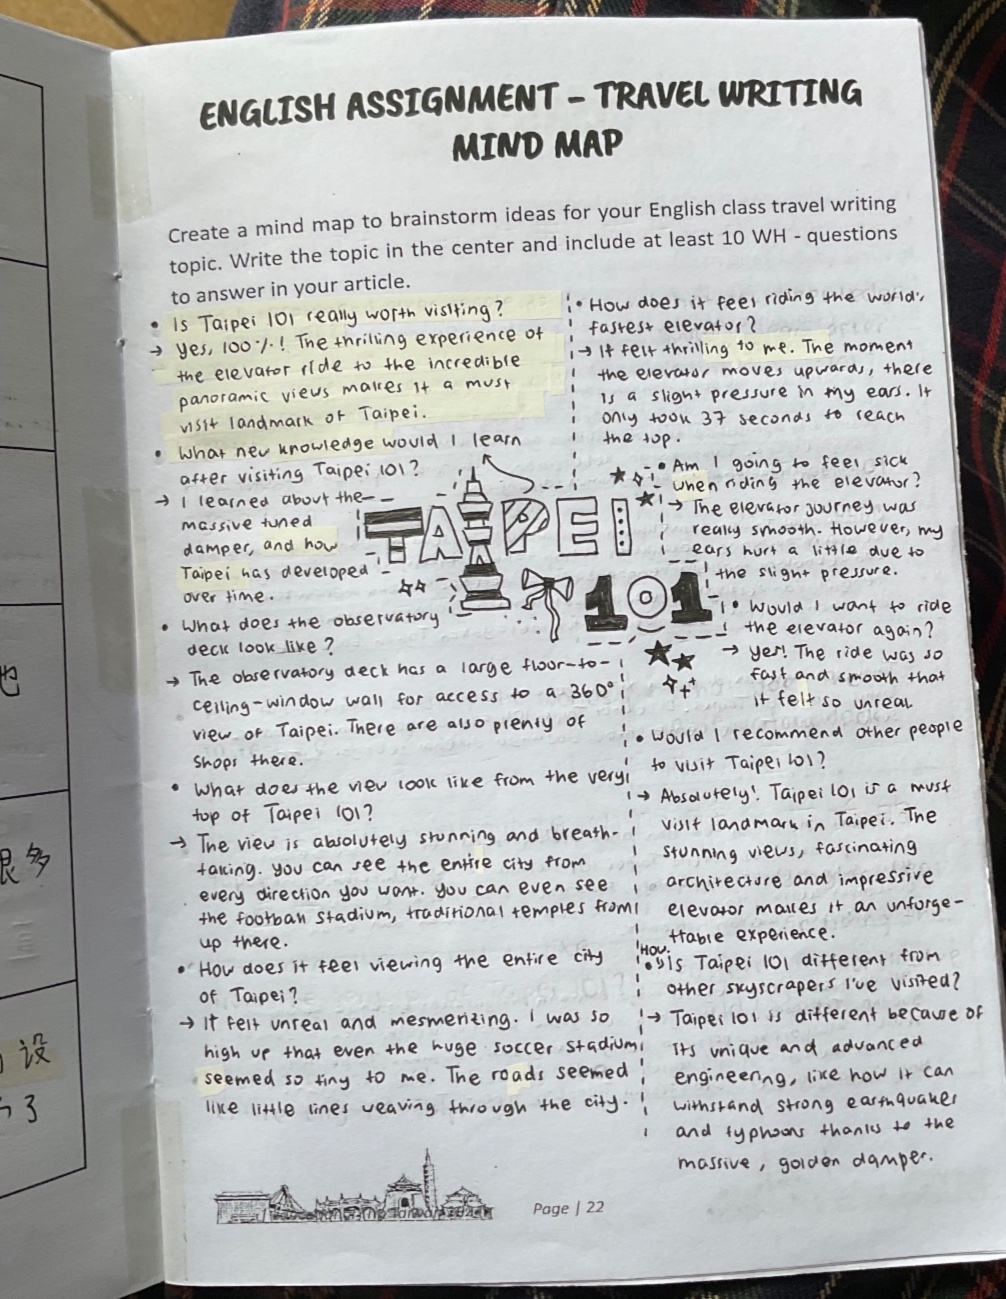 ENGLISH ASSIGNMENT – TRAVEL WRITING
MIND MAP
Create a mind map to brainstorm ideas for your English class travel writing
topic. Write the topic in the center and include at least 10 WH - questions
to answer in your article.
• Is Taipei 101 really worth visiting?
→ Yes, 100%! The thrilling experience of
the elevator ride to the incredible
panoramic views makes it a must
visit landmark of Taipei.
• What new knowledge would I learn
after visiting Taipei 101?
→ I learned about the
massive tuned
damper, and how
Taipei has developed
over time.
• What does the observatory
deck look like?
→ The observatory deck has a large floor-to-
ceiling-window wall for access to a 360°
view of Taipei. There are also plenty of
shops there.
• What does the view look like from the very
top of Taipei 101?
→ The view is absolutely stunning and breath-
taking. You can see the entire city from
every direction you want. You can even see
the football stadium, traditional temples from
up there.
• How does it feel viewing the entire city
of Taipei?
→ It felt unreal and mesmerizing. I was so
high up that even the huge soccer stadium
seemed so tiny to me. The roads seemed
like little lines weaving through the city.
TAIPEI
101
• How does it feel riding the world's
fastest elevator?
→ It felt thrilling to me. The moment
the elevator moves upwards, there
is a slight pressure in my ears. It
only took 37 seconds to reach
the top.
• Am I going to feel sick
when riding the elevator?
→ The elevator journey was
really smooth. However, my
ears hurt a little due to
the slight pressure.
• Would I want to ride
the elevator again?
→ Yes! The ride was so
fast and smooth that
it felt so unreal
• Would I recommend other people
to visit Taipei 101?
→ Absolutely! Taipei 101 is a must
visit landmark in Taipei. The
stunning views, fascinating
architecture and impressive
elevator makes it an unforge-
ttable experience.
• How is Taipei 101 different from
other skyscrapers I've visited?
→ Taipei 101 is different because of
its unique and advanced
engineering, like how it can
withstand strong earthquakes
and typhoons thanks to the
massive, golden damper.
Page | 22
也
很多
设
了